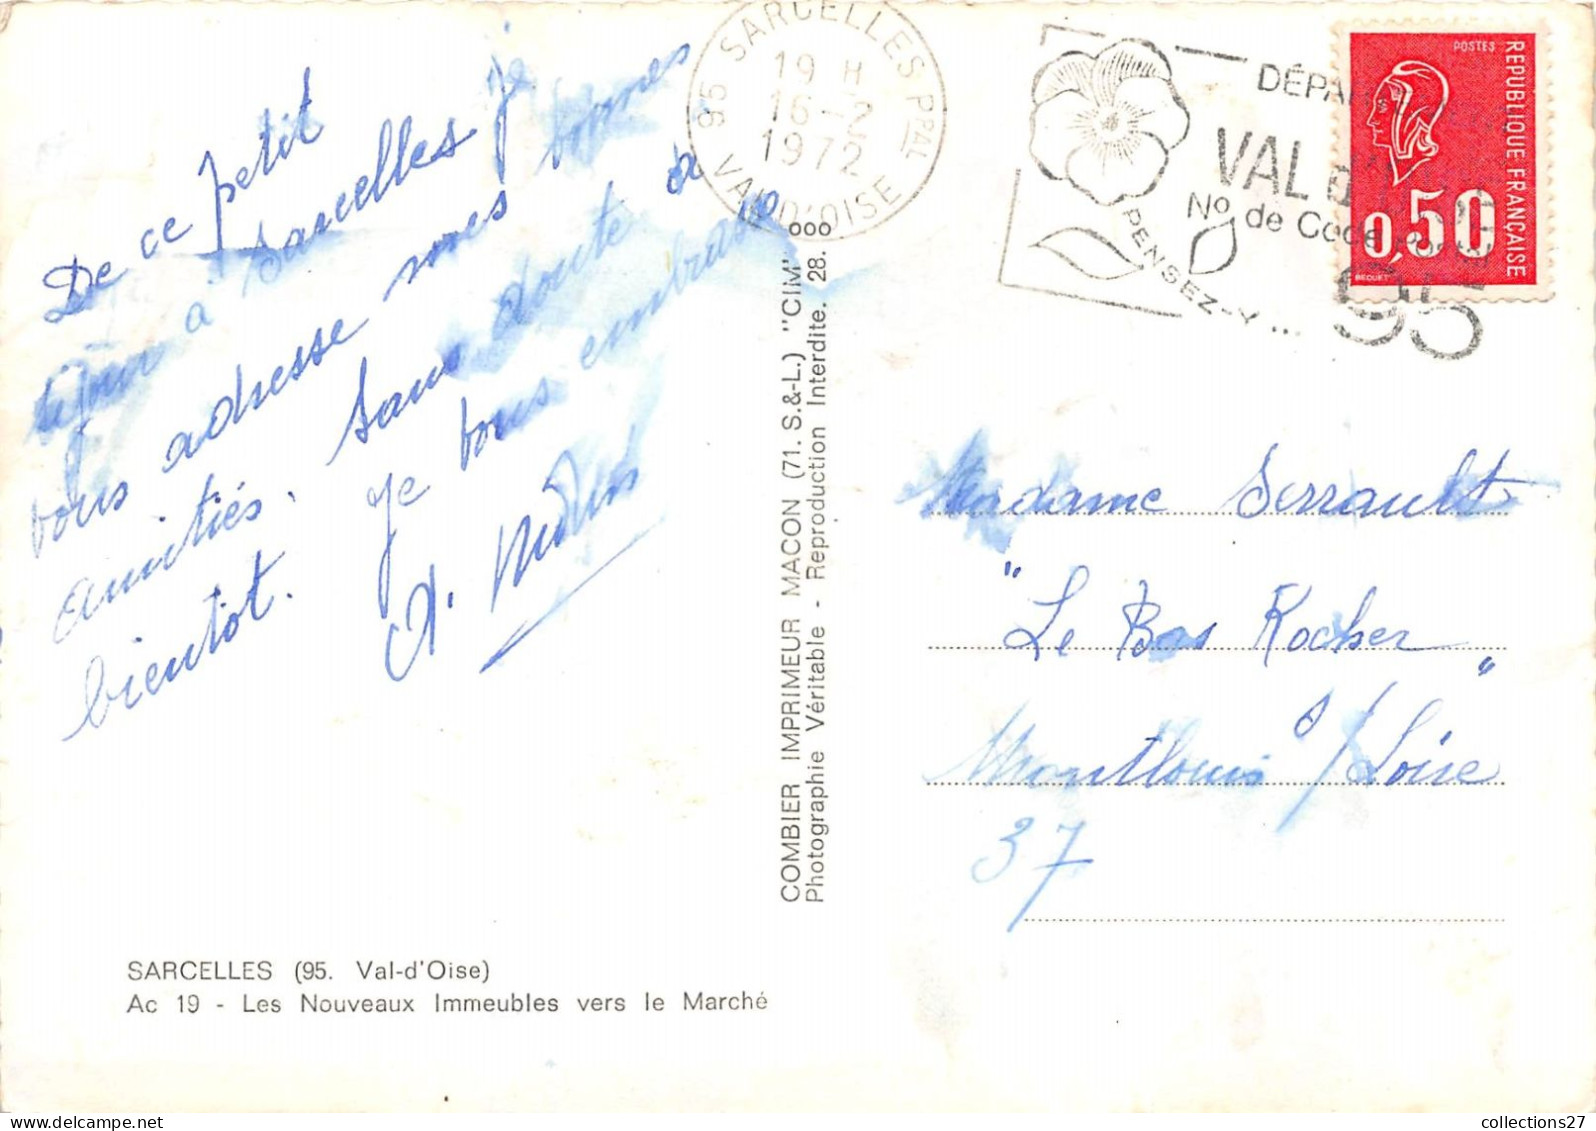 De ce petit
séjour à Sarcelles je
vous adresse mes bonnes
amitiés. Sans doute à
bientôt. Je vous embrasse
SARCELLES (95. Val-d'Oise)
Ac 19 - Les Nouveaux Immeubles vers le Marché
COMBIER IMPRIMEUR MACON (71. S.&-L.) "CIM"
Photographie Véritable - Reproduction Interdite. 28. ooo
95 SARCELLES PPAL
19 H
16-2
1972
VAL D'OISE
VAL
N° de Code
PENSEZ-Y...
95
POSTES
REPUBLIQUE FRANÇAISE
0,50
BEQUET
Madame Serrault
"Le Bas Rocher"
Montlouis s/Loire
37
collections27